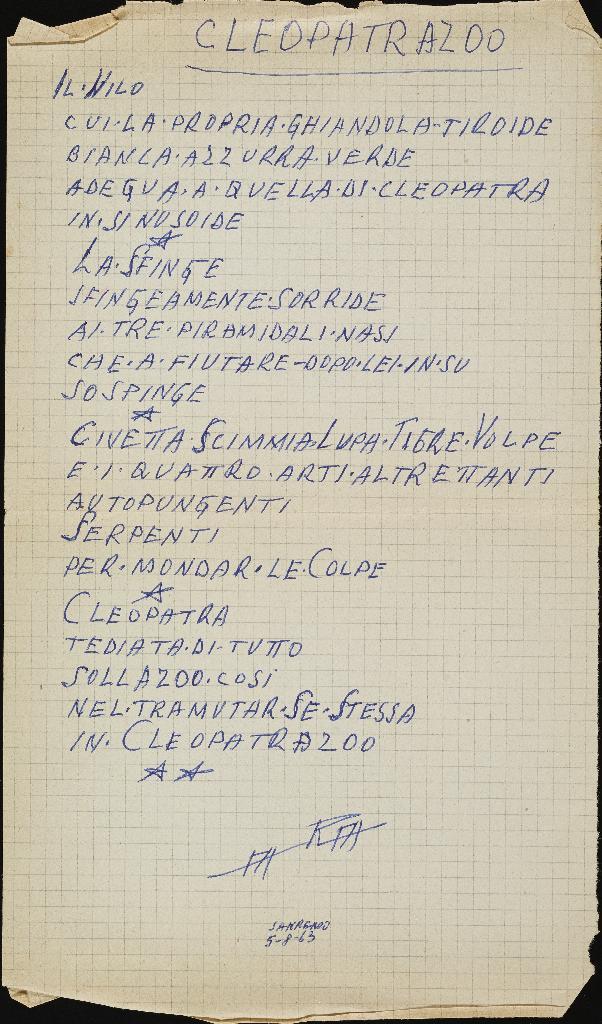 CLEOPATRAZOO
IL·NILO
CUI·LA·PROPRIA·GHIANDOLA-TIROIDE
BIANCA·AZZURRA·VERDE
ADEGUA·A·QUELLA·DI·CLEOPATRA
IN·SINUSOIDE
LA·SFINGE
SFINGEAMENTE·SORRIDE
AI·TRE·PIRAMIDALI·NASI
CHE·A·FIUTARE-DOPO·LEI·IN·SU
SOSPINGE
CIVETTA·SCIMMIA·LUPA·TIGRE·VOLPE
E·I·QUATTRO·ARTI·ALTRETTANTI
AUTOPUNGENTI
SERPENTI
PER·MONDAR·LE·COLPE
CLEOPATRA
TEDIATA·DI·TUTTO
SOLLAZOO·COSÌ
NEL·TRAMUTAR·SE·STESSA
IN·CLEOPATRAZOO
SANREMO
5-8-63